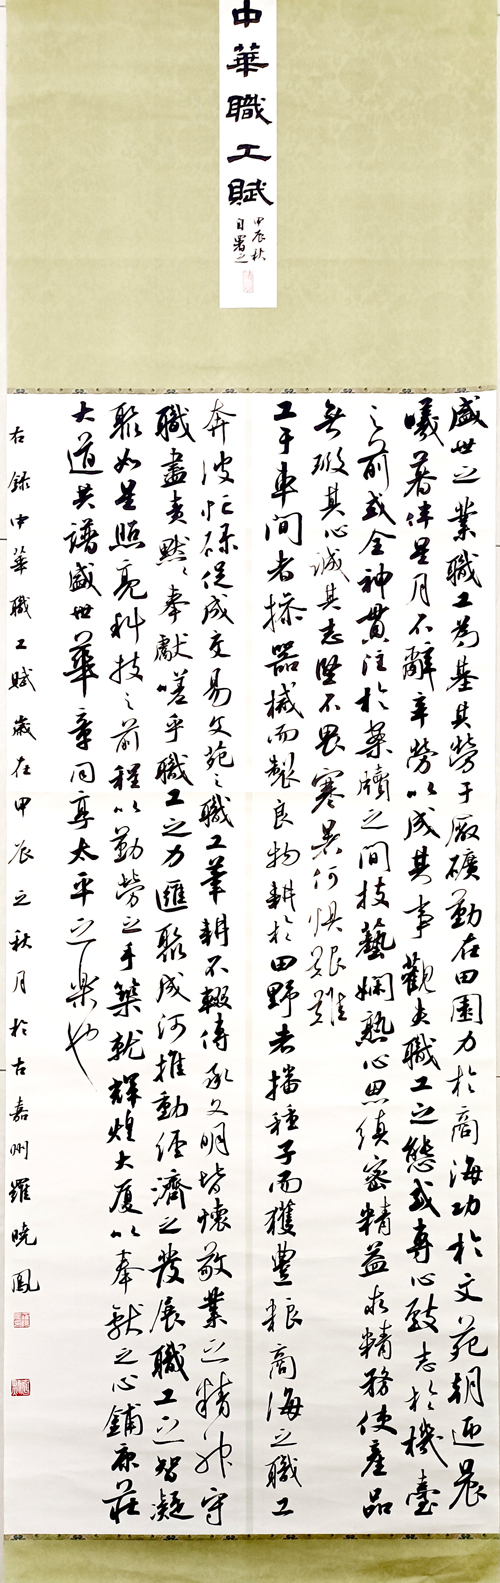 中華職工賦
甲辰秋
自署之
盛世之業職工為基其勞于廠礦勤在田園力於商海功於文苑朝迎晨
曦暮伴星月不辭辛勞以成其事觀夫職工之態或專心致志於機臺
之前或全神貫注於案牘之間技藝嫻熟心思縝密精益求精務使產品
無瑕其心誠其志堅不畏寒暑何懼艱難
工于車間者操器械而製良物耕於田野者播種子而獲豐粮商海之職工
奔波忙碌促成交易文苑之職工筆耕不輟傳承文明皆懷敬業之精神守
職盡責默默奉獻嗟乎職工之力匯聚成河推動經濟之發展職工之智凝
聚如星照亮科技之前程以勤勞之手築就輝煌大廈以奉獻之心鋪康莊
大道共譜盛世華章同享太平之樂也
右錄中華職工賦歲在甲辰之秋月於古嘉州羅曉鳳